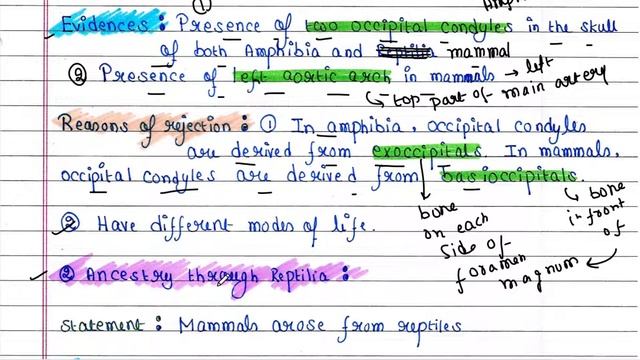 ①
Evidences : Presence of two occipital condyles in the skull
of both Amphibia and mammal
② Presence of left aortic arch in mammals → left
↳ top part of main artery
Reasons of rejection : ① In amphibia, occipital condyles
are derived from exoccipitals. In mammals,
occipital condyles are derived from basioccipitals.
bone on each side of foramen magnum
↳ bone in front of
② Have different modes of life.
② Ancestry through Reptilia :
Statement : Mammals arose from reptiles